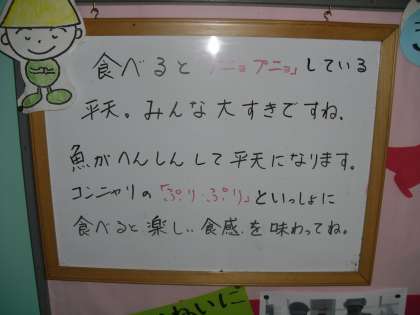 食べると「プニョプニョ」している
平天。みんな大すきですね。
魚がへんしんして平天になります。
コンニャクの「ぷりぷり」といっしょに
食べると楽しい食感を味わってね。
いに